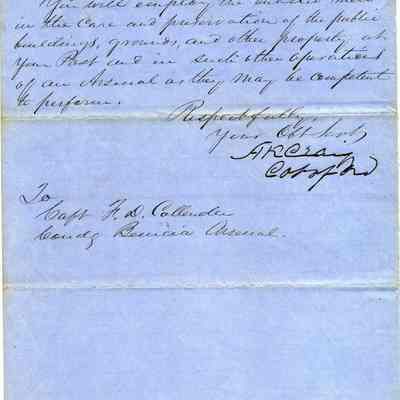 You will employ the enlisted men
in the care and preservation of the public
buildings, grounds, and other property at
your Post and in such other operations
of an Arsenal as they may be competent
to perform.
Respectfully,
Your Obt Servt,
H K Craig
Col of Ord
To
Capt F. D. Callender
Comdg Benicia Arsenal.